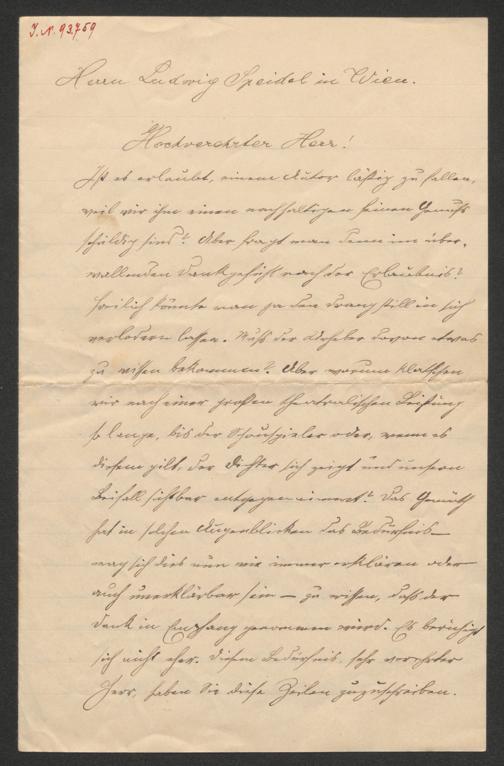 J.N. 93759
Herrn Ludwig Speidel in Wien.
Hochverehrter Herr!
Ist es erlaubt, einem Autor lästig zu fallen,
weil wir ihm einen nachhaltigen feinen Genuß
schuldig sind? Aber fragt man denn im über-
wallenden Dankgefühl nach der Erlaubnis?
Freilich könnte man ja den Drang still in sich
verlodern lassen. Muß der Urheber davon etwas
zu wissen bekommen? Aber warum klatschen
wir nach einer großen theatralischen Leistung
so lange, bis der Schauspieler oder, wenn es
diesem gilt, der Dichter sich zeigt und unsern
Beifall sichtbar entgegennimmt? Das Gemüth
hat in solchen Augenblicken das Bedürfnis –
mag sich dies nun wie immer erklären oder
auch unerklärbar sein – zu wissen, daß der
Dank in Empfang genommen wird. Es beruhigt
sich nicht eher. Diesem Bedürfnis, sehr verehrter
Herr, haben Sie diese Zeilen zuzuschreiben.